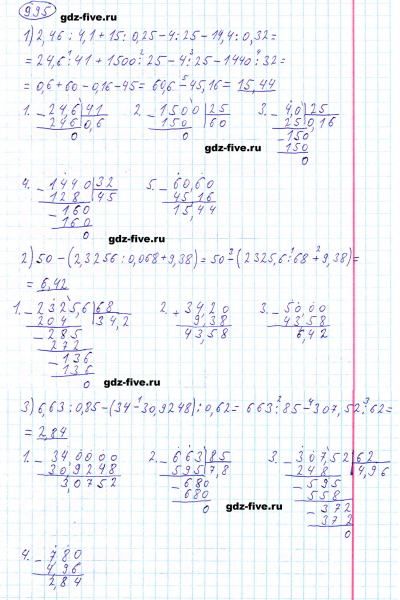 995 gdz-five.ru
1) 2,46 : 4,1 + 15 : 0,25 - 4 : 25 - 14,4 : 0,32 =
= 24,6 : 41 + 1500 : 25 - 4 : 25 - 1440 : 32 =
= 0,6 + 60 - 0,16 - 45 = 60,6 - 45,16 = 15,44
1. 24,6 | 41 2. 1500 | 25 3. 4,0 | 25
24 6 | 0,6 150 | 60 2 5 | 0,16
0 0 150
gdz-five.ru
150
0
4. 1440 | 32 5. 60,60
128 | 45 45,16
160 15,44
160
0
gdz-five.ru
2) 50 - (2,3256 : 0,068 + 9,38) = 50 - (2325,6 : 68 + 9,38) =
= 6,42
1. 2325,6 | 68 2. 34,20 3. 50,00
204 | 34,2 9,38 43,58
285 43,58 6,42
272
136
136
0
gdz-five.ru
3) 6,63 : 0,85 - (34 - 30,9248) : 0,62 = 663 : 85 - 307,52 : 62 =
= 2,84
1. 34,0000 2. 663 | 85 3. 307,52 | 62
30,9248 595 | 7,8 248 | 4,96
3,0752 680 595
680 558
0 372
372
0
gdz-five.ru
4. 7,80
4,96
2,84